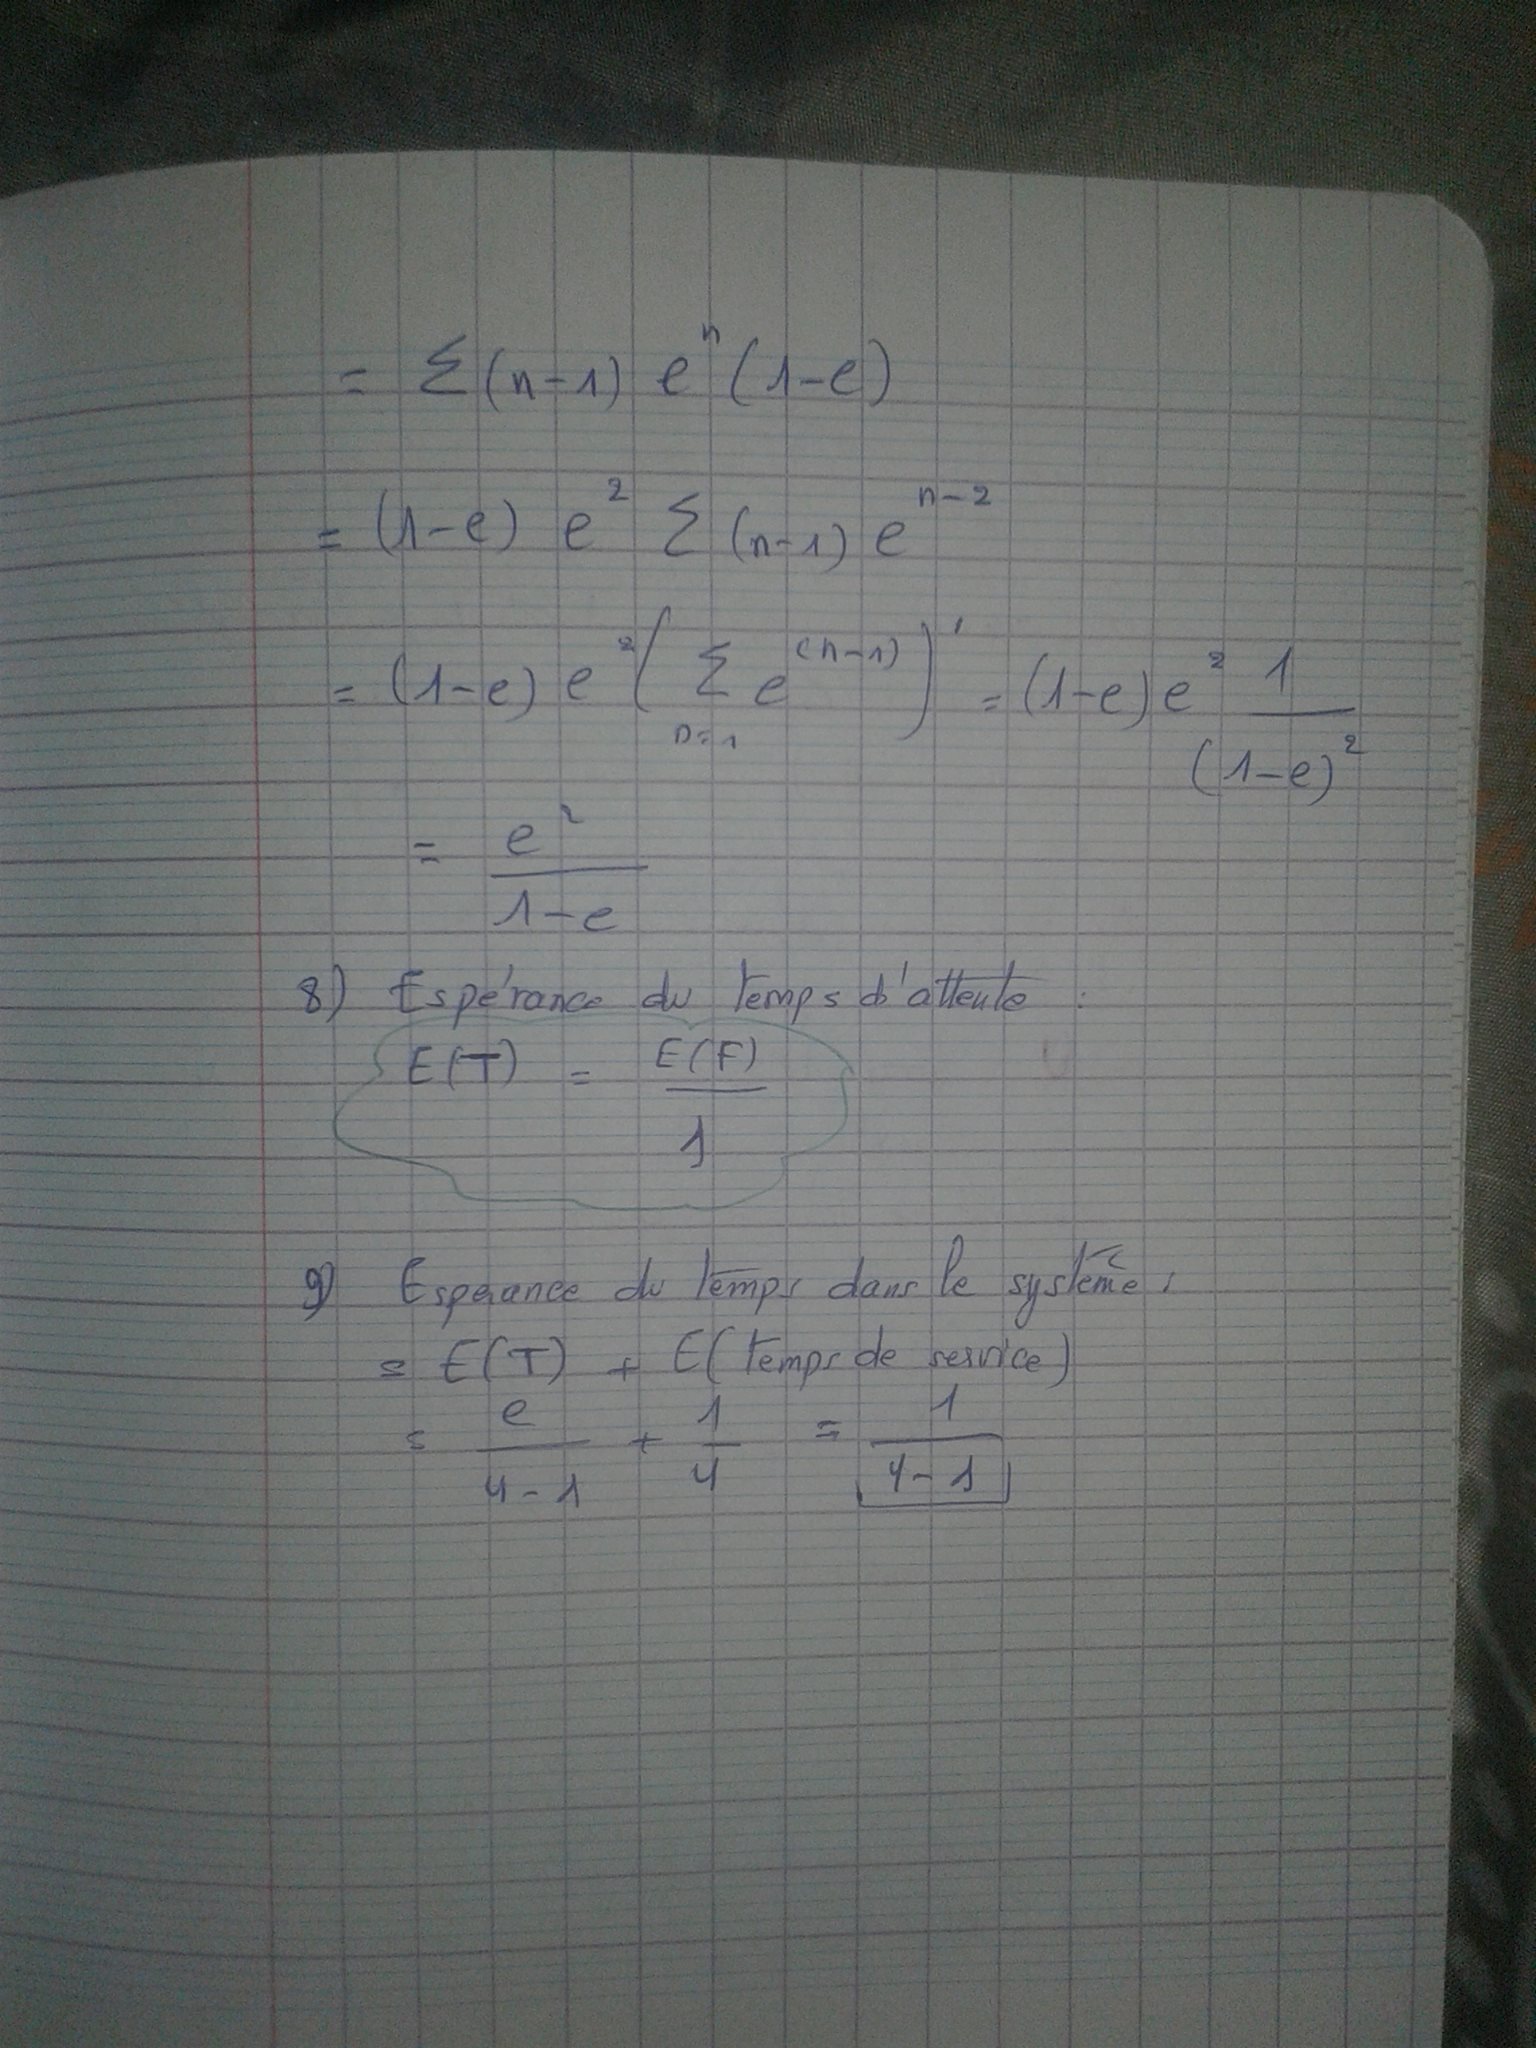 = Σ (n-1) e^n (1-e)
= (1-e) e^2 Σ (n-1) e^{n-2}
= (1-e) e^2 ( Σ_{n=1} e^{(n-1)} )' = (1-e) e^2 1/(1-e)^2
= e^2/(1-e)
8) Espérance du temps d'attente :
E(T) = E(F)/1
9) Esperance du temps dans le système :
= E(T) + E(temps de service)
= e/(4-1) + 1/4 = 1/(4-1)